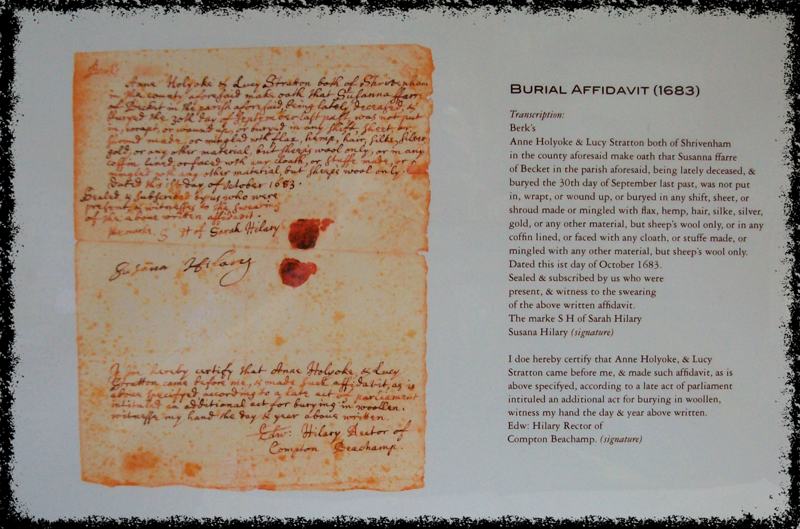 Berks
Anne Holyoke & Lucy Stratton both of Shrivenham
in the county aforesaid make oath that Susanna ffarre
of Becket in the parish aforesaid, being lately deceased, &
buryed the 30th day of September last past, was not put
in, wrapt, or wound up, or buryed in any shift, sheet, or
shroud made, or mingled with flax, hemp, hair, silke, silver
gold, or any other material, but sheeps wool only, or in any
coffin lined, or faced with any cloath, or stuffe made, or
mingled with any other material, but sheeps wool only.
dated this 1st day of October 1683.
Sealed & subscribed by us who were
present, & witnesses to the swearing
of the above written affidavit.
The marke S H of Sarah Hilary
Susana Hilary
I doe hereby certify that Anne Holyoke, & Lucy
Stratton came before me, & made such affidavit, as is
above specifyed according to a late act of parliament
intituled an additional act for burying in woollen.
witnesse my hand the day & year above written.
Edw: Hilary Rector of
Compton Beachamp.
BURIAL AFFIDAVIT (1683)
Transcription:
Berk's
Anne Holyoke & Lucy Stratton both of Shrivenham
in the county aforesaid make oath that Susanna ffarre
of Becket in the parish aforesaid, being lately deceased, &
buryed the 30th day of September last past, was not put
in, wrapt, or wound up, or buryed in any shift, sheet, or
shroud made or mingled with flax, hemp, hair, silke, silver,
gold, or any other material, but sheep's wool only, or in any
coffin lined, or faced with any cloath, or stuffe made, or
mingled with any other material, but sheep's wool only.
Dated this ist day of October 1683.
Sealed & subscribed by us who were
present, & witness to the swearing
of the above written affidavit.
The marke S H of Sarah Hilary
Susana Hilary (signature)
I doe hereby certify that Anne Holyoke, & Lucy
Stratton came before me, & made such affidavit, as is
above specifyed, according to a late act of parliament
intituled an additional act for burying in woollen,
witness my hand the day & year above written.
Edw: Hilary Rector of
Compton Beachamp. (signature)